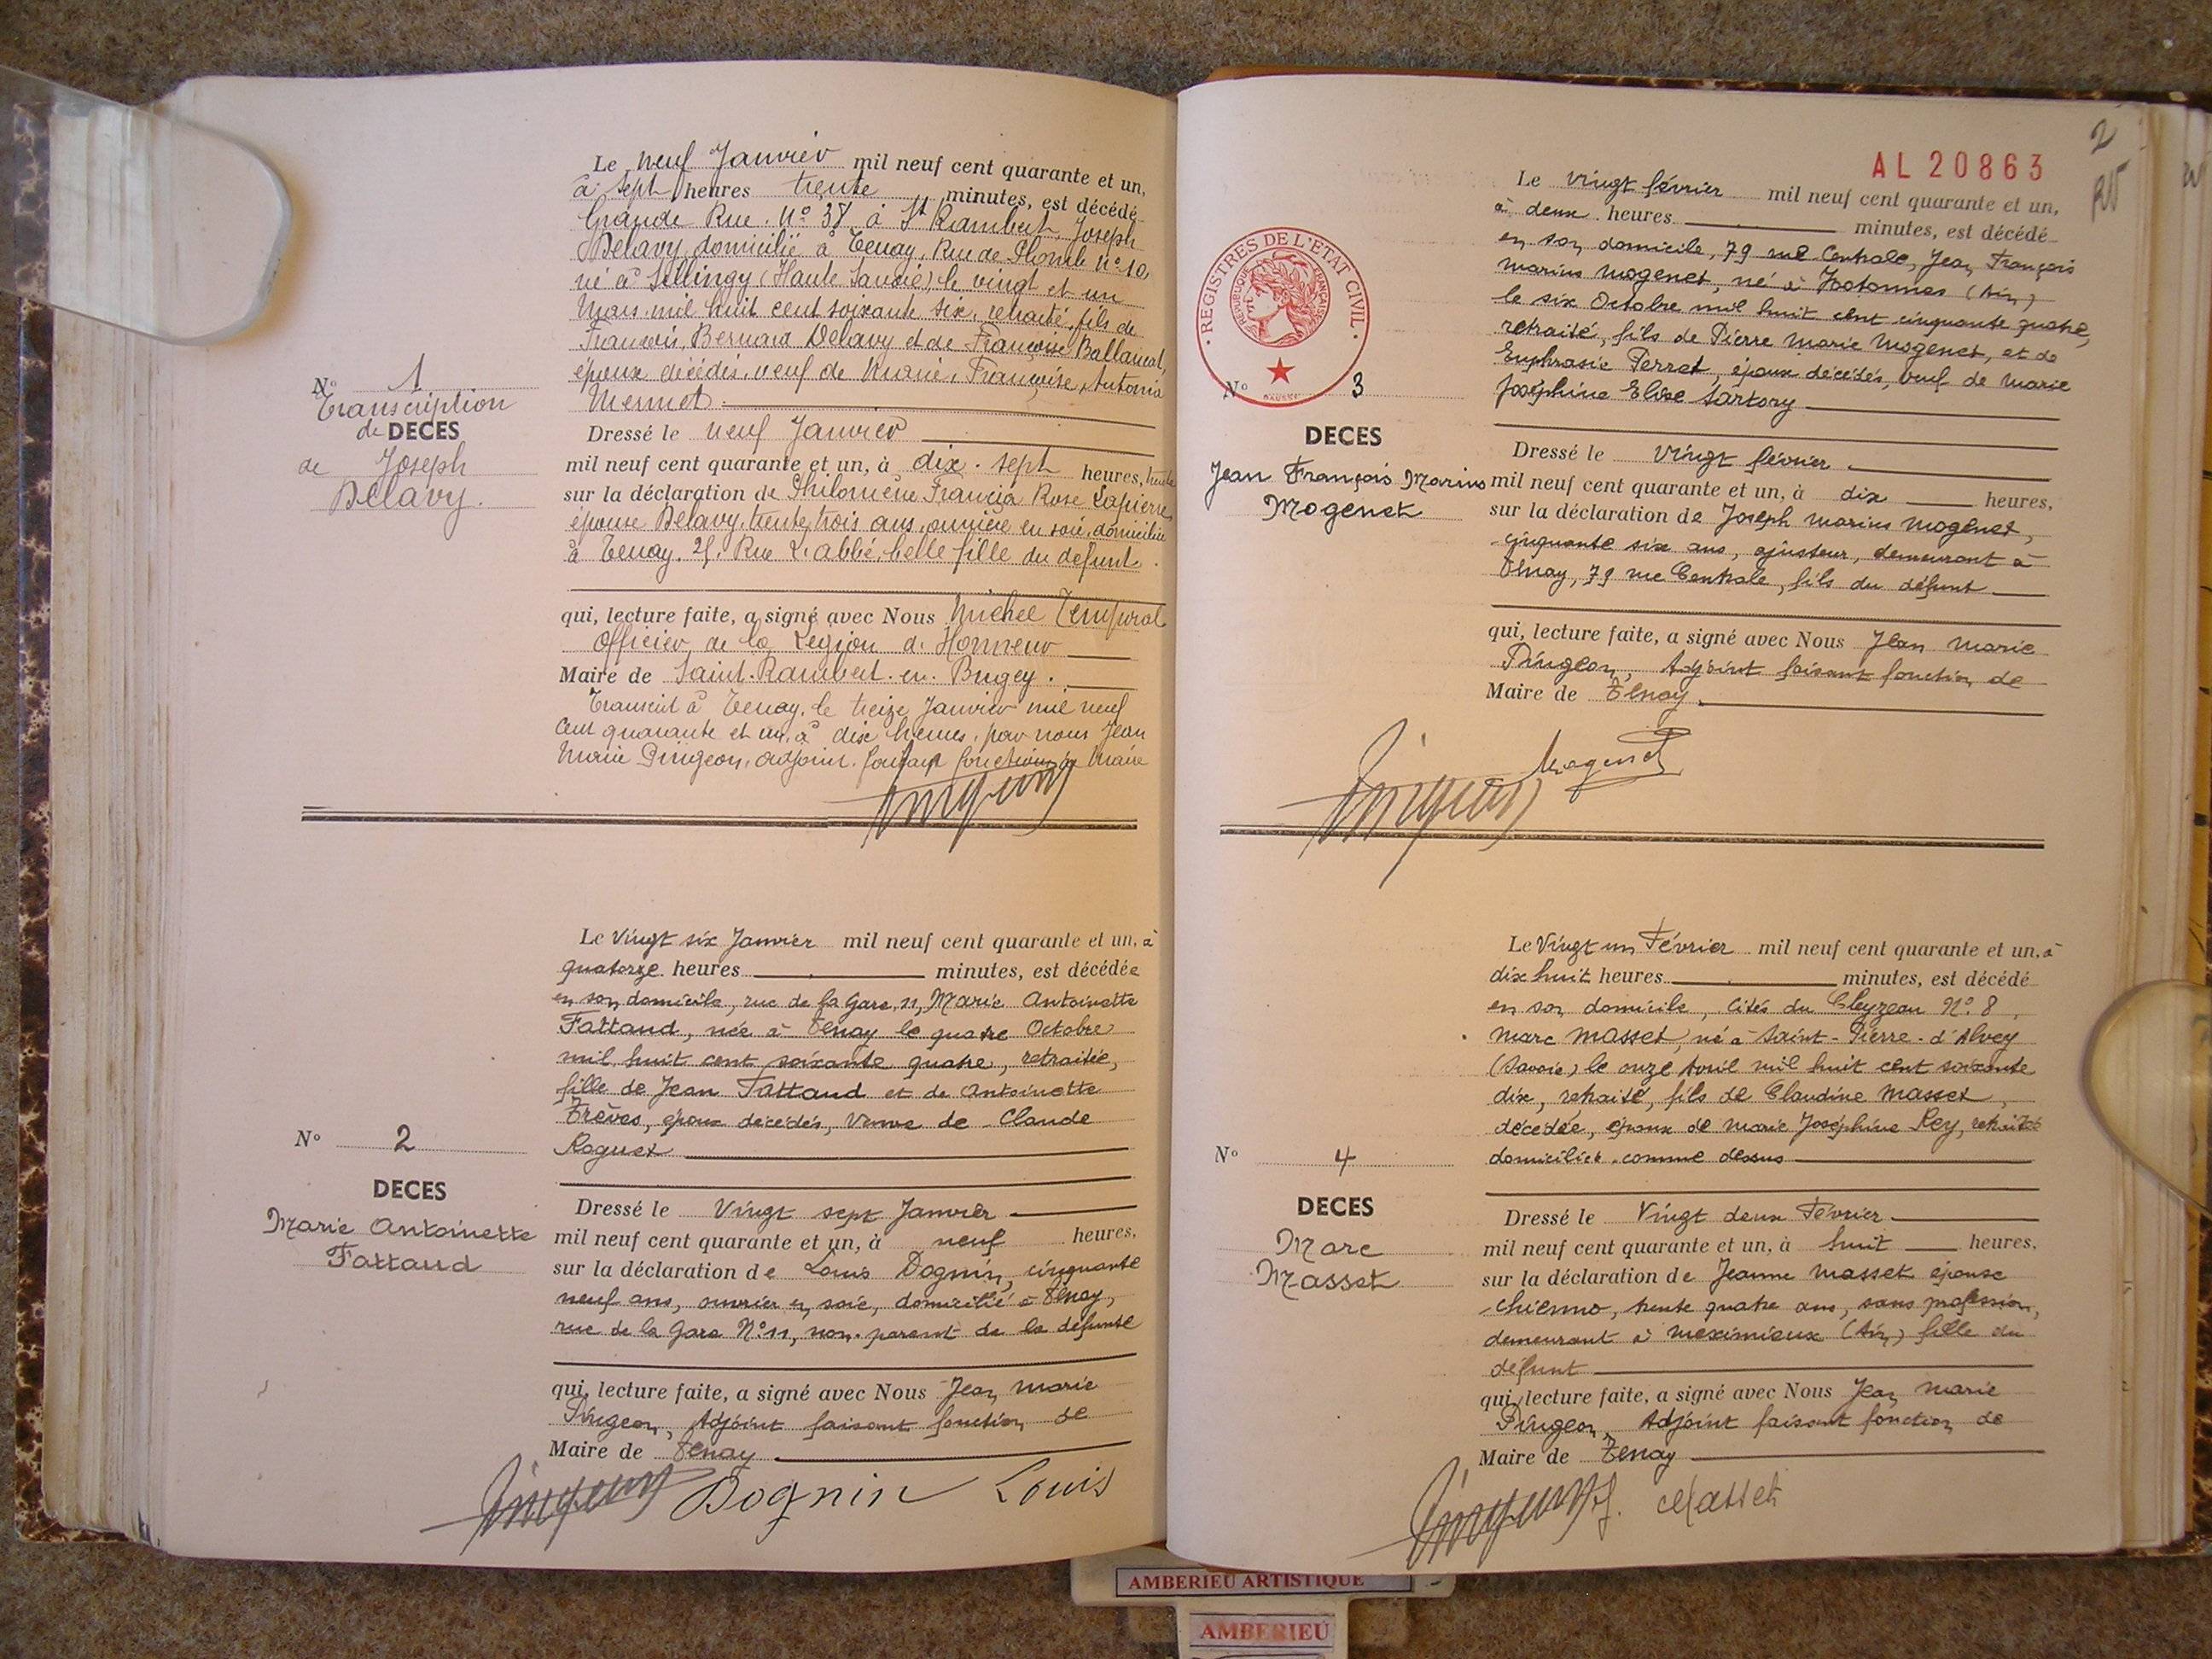 Le neuf Janvier mil neuf cent quarante et un,
à sept heures trente minutes, est décédé
Grande Rue. N° 38 à St Rambert, Joseph
Delavy, domicilié à Tenay, Rue de Plomb N° 10,
né à Sillingy (Haute Savoie) le vingt et un
Mars mil huit cent soixante six, retraité, fils de
François, Bernard Delavy et de Françoise Ballansat,
époux décédés, veuf de Marie, Françoise, Antonia
Mermet.
N° 1
Transcription
de DECES
de Joseph
Delavy.
Dressé le neuf Janvier
mil neuf cent quarante et un, à dix-sept heures,
sur la déclaration de Philomène Francia Rose Lapierre
épouse Delavy, trente trois ans, ouvrière en soie, domiciliée
à Tenay. 25, Rue Labbé, belle fille du défunt.
qui, lecture faite, a signé avec Nous Michel Temporal
Officier de la Légion d'Honneur
Maire de Saint-Rambert-en-Bugey.
Transcrit à Tenay, le treize Janvier mil neuf
cent quarante et un, à dix heures, par nous Jean
Marie Pingeon, adjoint, faisant fonction de Maire
Pingeon
Le Vingt six Janvier mil neuf cent quarante et un, à
quatorze heures minutes, est décédée
en son domicile, rue de la Gare, 11, Marie Antoinette
Fattaud, née à Tenay le quatre Octobre
mil huit cent soixante quatre, retraitée,
fille de Jean Fattaud et de Antoinette
Trèves, époux décédés, Veuve de Claude
Roguet
N° 2
DECES
Marie Antoinette
Fattaud
Dressé le Vingt sept Janvier
mil neuf cent quarante et un, à neuf heures,
sur la déclaration de Louis Dognin, cinquante
neuf ans, ouvrier en soie, domicilié à Tenay,
rue de la Gare N° 11, non-parent de la défunte
qui, lecture faite, a signé avec Nous Jean Marie
Pingeon, Adjoint faisant fonction de
Maire de Tenay
Pingeon Dognin Louis
2
AL 20863
Le Vingt février mil neuf cent quarante et un,
à deux heures minutes, est décédé
en son domicile, 79 rue Centrale, Jean François
Marius Mogenet, né à Hotonnes (Ain)
le six Octobre mil huit cent cinquante quatre,
retraité, fils de Pierre Marie Mogenet, et de
Euphrasie Perret, époux décédés, veuf de Marie
Joséphine Elise Sartory
REGISTRES DE L'ÉTAT CIVIL
RÉPUBLIQUE FRANÇAISE
N° 3
DECES
Jean François Marius
Mogenet
Dressé le Vingt février
mil neuf cent quarante et un, à dix heures,
sur la déclaration de Joseph Marius Mogenet,
cinquante six ans, ajusteur, demeurant à
Tenay, 79 rue Centrale, fils du défunt
qui, lecture faite, a signé avec Nous Jean Marie
Pingeon, Adjoint faisant fonction de
Maire de Tenay.
Pingeon Mogenet
Le Vingt un Février mil neuf cent quarante et un, à
dix huit heures minutes, est décédé
en son domicile, Cités du Cleyzeau N° 8,
Marc Masset, né à Saint-Pierre-d'Alvey
(Savoie) le onze Avril mil huit cent soixante
dix, retraité, fils de Claudine Masset,
décédée, époux de Marie Joséphine Rey, retraitée
domiciliée comme dessus
N° 4
DECES
Marc
Masset
Dressé le Vingt deux Février
mil neuf cent quarante et un, à huit heures,
sur la déclaration de Jeanne Masset épouse
Chienno, trente quatre ans, sans profession,
demeurant à Meximieux (Ain) fille du
défunt
qui, lecture faite, a signé avec Nous Jean Marie
Pingeon, Adjoint faisant fonction de
Maire de Tenay
Pingeon J. Masset
AMBERIEU ARTISTIQUE
AMBERIEU